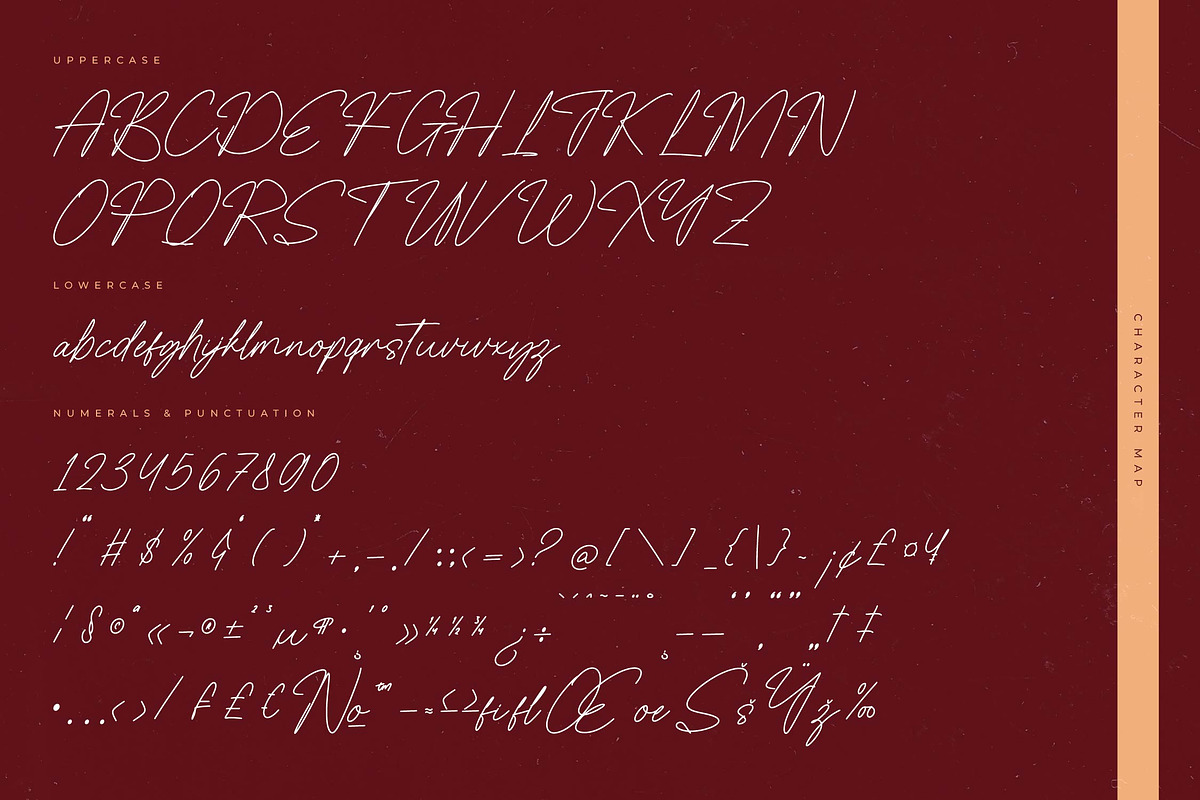 UPPERCASE
ABCDEFGHIJKLMN
OPQRSTUVWXYZ
LOWERCASE
abcdefghijklmnopqrstuvwxyz
NUMERALS & PUNCTUATION
1234567890
! " # $ % & ' ( ) * + , - . / : ; < = > ? @ [ \ ] _ { | } ~ ¡ ¢ £ ¤ ¥
¦ § © ª « ¬ ® ± ² ³ µ ¶ · ¹ º » ¼ ½ ¾ ¿ ÷ – — ‘ ’ ‚ “ ” „ † ‡
• … ‹ › ⁄ ₣ ₤ € № ™ − ≈ ≤ ≥ fi fl Œ œ Š š Ÿ ž ‰
CHARACTER MAP